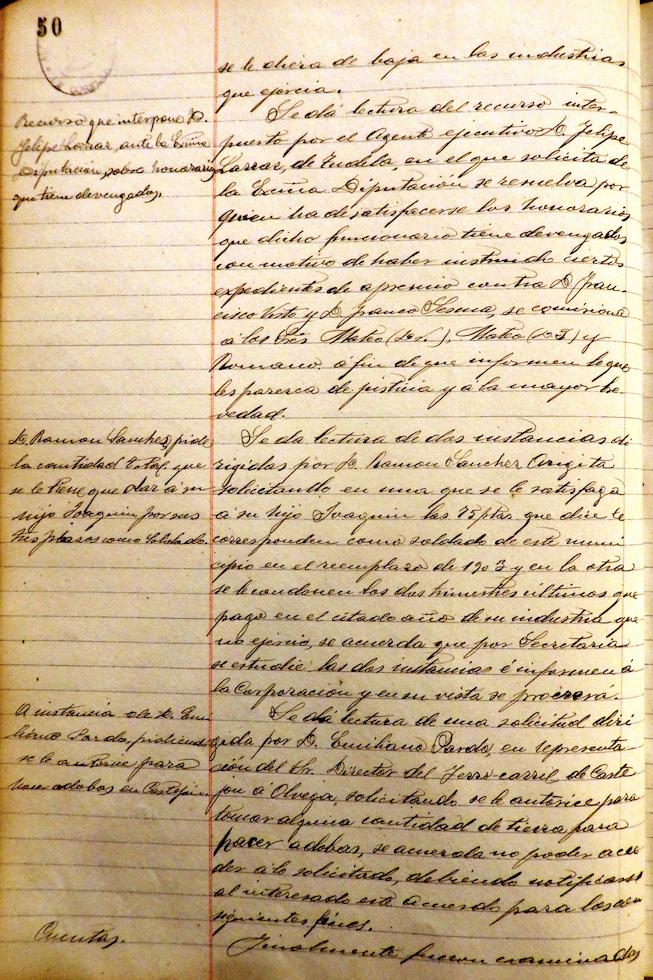 50
se le diera de baja en las industrias
que ejercia.
Recurso que interpone D.
Felipe Larraz, ante la Exma
Diputación, sobre honorarios
que tiene devengados.
Se dá lectura del recurso inter
puesto por el Agente ejecutivo D. Felipe
Larraz, de Tudela, en el que solicita de
la Exma Diputación se resuelva por
quien ha de satisfacerse los honorarios
que dicho funcionario tiene devengados
con motivo de haber instruido ciertos
expedientes de apremio contra D. Fran-
cisco Visto y D. Franco Sesma, se comisiona
á los Sres Mateo Mateo y
Romano. á fin de que informen lo que
les parezca de justicia y á la mayor bre
vedad.
D. Ramon Sanchez pide
la cantidad total que
se le tiene que dar á su
hijo Joaquin por sus
tres plazos como soldado.
Se da lectura de dos instancias di
rigidas por D. Ramon Sanchez Arigita
solicitando en una que se le satisfaga
á su hijo Joaquin las 75 ptas que dice le
corresponden como soldado de este muni
cipio en el reemplazo de 1903 y en la otra
se le condonen los dos trimestres últimos que
pago en el citado año de su industria que
no ejercio, se acuerda que por Secretaria
se estudie las dos instancias é informen á
la Corporación y en su vista se procederá.
A instancia de D. Emi
liano Pardo, pidiendo
se le autorice para
hacer adobas en Castejón
Se da lectura de una solicitud diri
gida por D. Emiliano Pardo, en representa
ción del Sr. Director del Ferro-carril de Caste
jon a Olvega, solicitando se le autorice para
tomar alguna cantidad de tierra para
hacer adobas, se acuerda no poder acce
der á lo solicitado, debiendo notificarse
al interesado este acuerdo para los con
siguientes fines.
Cuentas.
Finalmente fueron examinadas